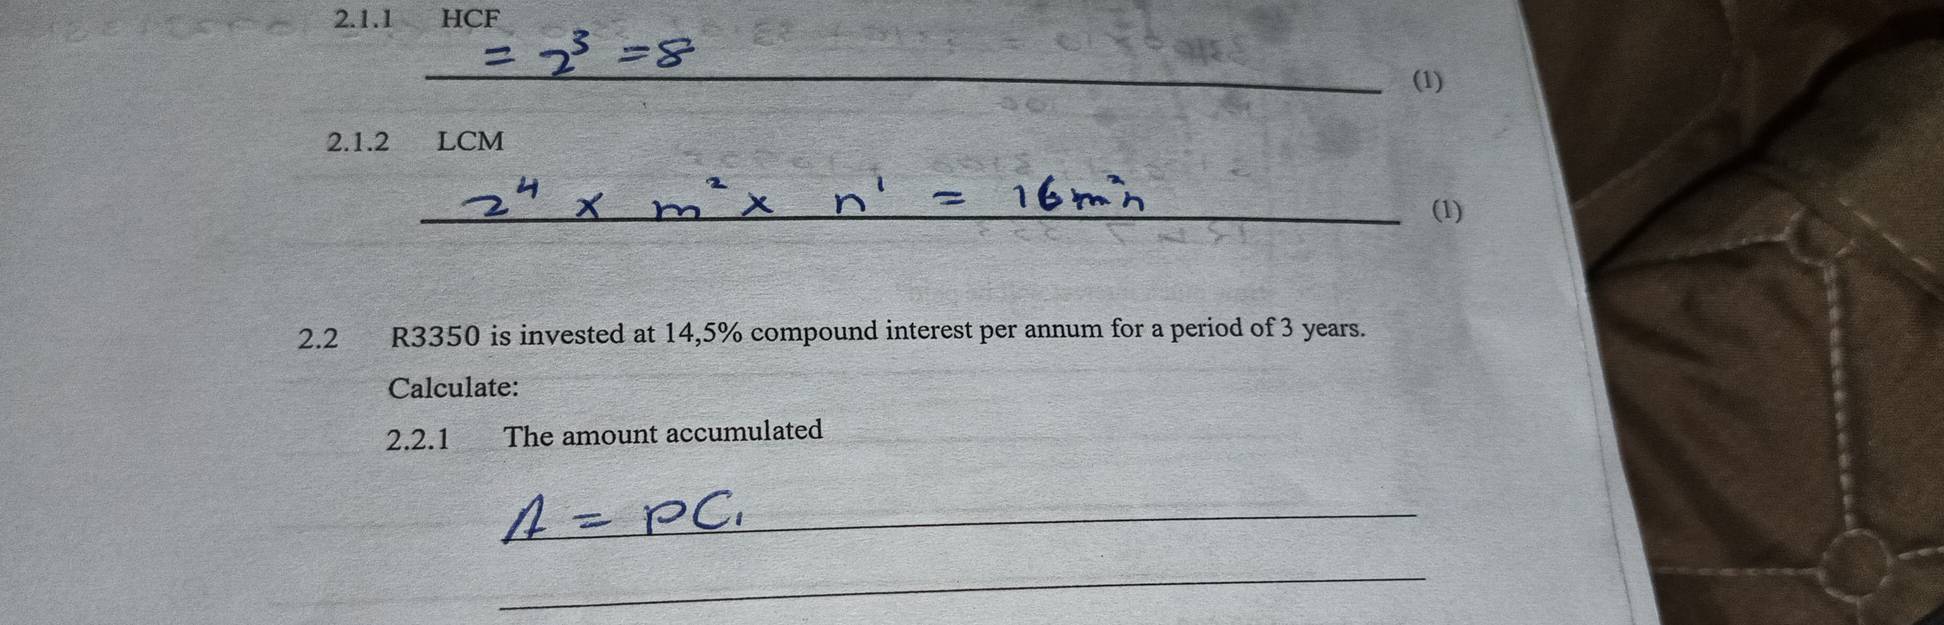 2.1.1 HCF
= 2³ = 8
(1)
2.1.2 LCM
2⁴ × m² × n¹ = 16m²n
(1)
2.2 R3350 is invested at 14,5% compound interest per annum for a period of 3 years.
Calculate:
2.2.1 The amount accumulated
A = P(1